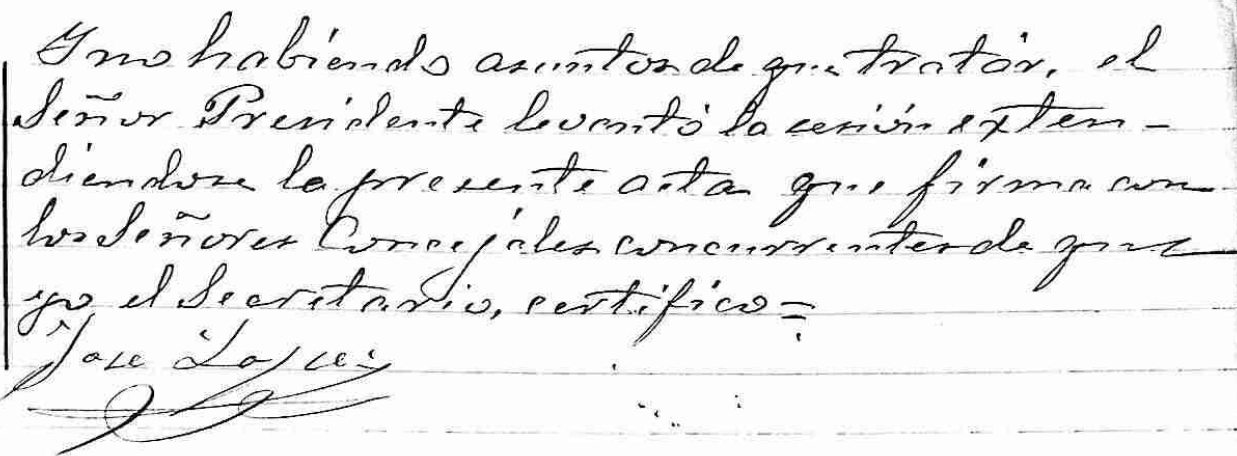 Y no habiendo asuntos de que tratar, el
Señor Presidente levantó la cesión exten-
diendose la presente acta que firma con
los Señores Concejales concurrentes de que
yo el Secretario, certifico=
Jose